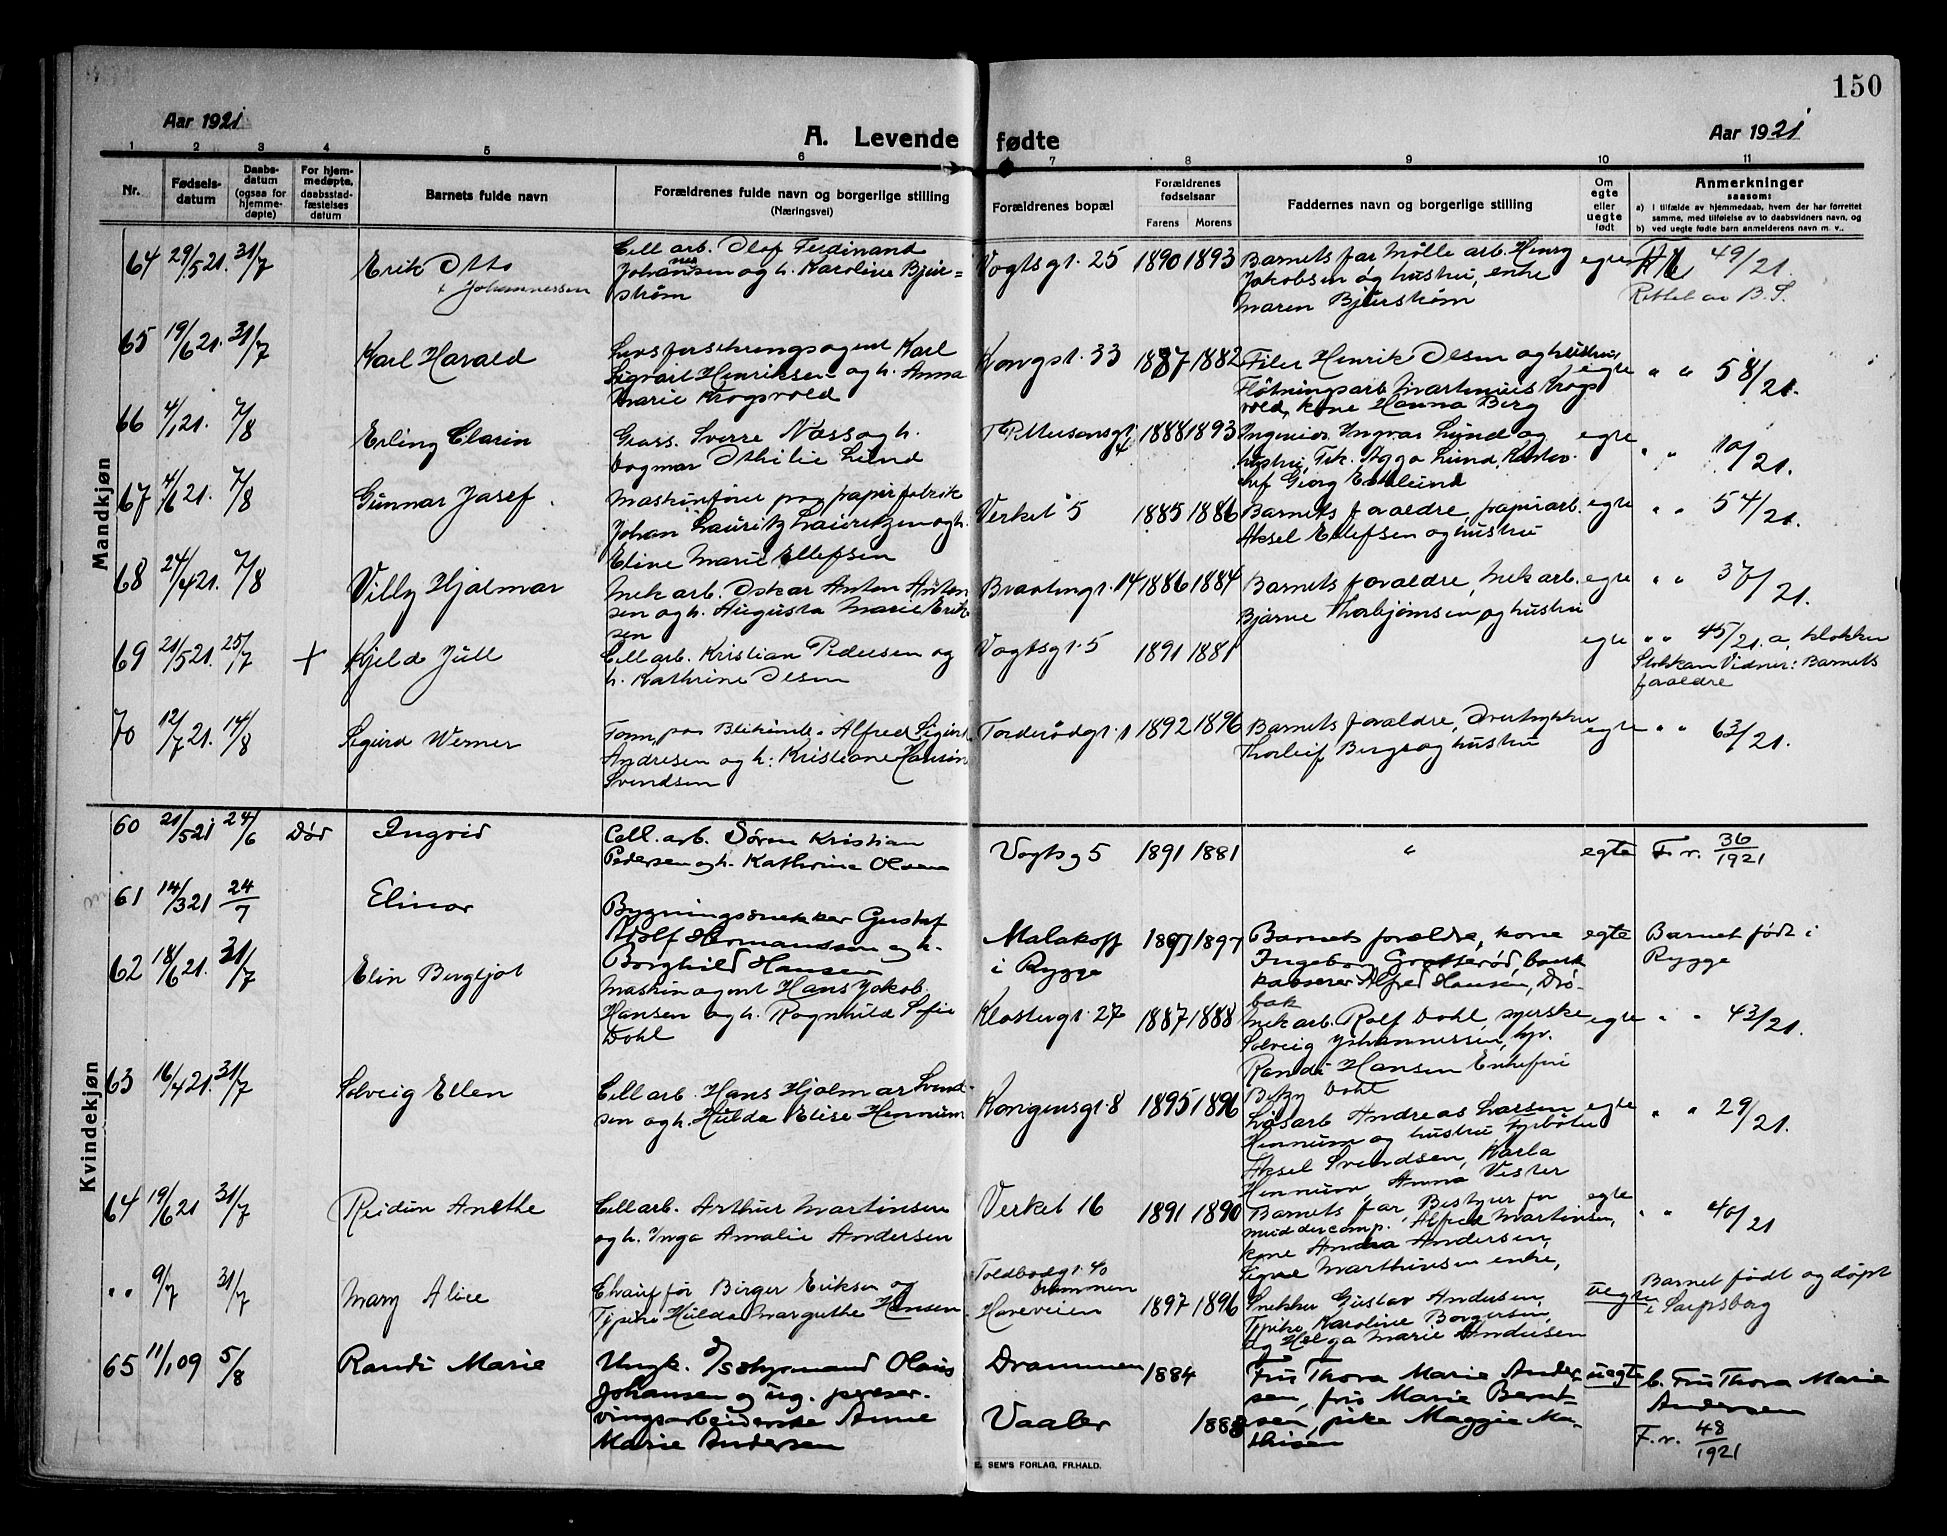 150
Aar 1921
A. Levende fødte
Aar 1921
1 2 3 4 5 6 7 8 9 10 11
Nr.
Fødsels-
datum
Daabs-
datum
(ogsaa for
hjemme-
døpte)
For hjem-
medøpte,
daabsstad-
fæstelses
datum
Barnets fulde navn
Forældrenes fulde navn og borgerlige stilling
(Næringsvei)
Forældrenes bopæl
Forældrenes
fødselsaar
Farens Morens
Faddernes navn og borgerlige stilling
Om
egte
eller
uegte
født
Anmerkninger
saasom:
a) i tilfælde av hjemmedaab, hvem der har forrettet
samme, med tilføielse av to daabsvidners navn, og
b) ved uegte fødte barn anmelderens navn m. v..
Mandkjøn
64 29/5 21. 31/7 Erik Otto
Johannessen
Cell arb. Olef Ferdinand
Johansen og h. Karoline Bjur=
strøm
Vogtsgt. 25 1890 1893
Barnets far Mølle arb. Henry
Jakobsen og hustru, enke
Maren Bjurstrøm
egte 49/21.
Rettet av B.S.
65 19/6 21. 31/7 Karl Harald
Livsforsikringsagent Karl
Sigvart Henriksen og h. Anna
Marie Krogsvold
Kongsgt. 33 1887 1882
Filer Henrik Olsen og hustru,
Fløtningsarb Martinius Krogs
vold, kone Hanna Berg
egte " " 58/21.
66 4/1 21. 7/8 Erling Clarin
Gross. Sverre Næss og h.
Dagmar Othilie Lund
1888 1893
Ingeniør Ingvar Lund og
hustru, Frk. Agga Lund,
Georg
egte " " 10/21.
67 4/6 21. 7/8 Gunnar Josef.
Maskinfører paa papirfabrik
Johan Lauritz Lauritzen og h.
Eline Marie Ellefsen
Verket 5 1885 1886
Barnets forældre, papirarb.
Aksel Ellefsen og hustru
egte " " 54/21.
68 24/4 21. 7/8 Villy Hjalmar
Mek arb. Oskar Anton Anton
sen og h. Augusta Marie Erik
sen
Braatengt. 14 1886 1884
Barnets forældre, Mek arb.
Bjarne Thorbjørnsen og hustru
egte " " 37/21.
69 21/5 21. 25/7 + Kjeld Jull
Cell arb. Kristian Pedersen og
h. Kathrine Olsen
Vogtsgt. 5 1891 1881
egte " " 45/21. a, klokker
Vidner: Barnets
forældre
70 12/7 21. 14/8 Sigurd Werner
Form. paa Blikindu. Alfred Sigurd
Andresen og h. Kristiane
Svendsen
Torderødgt. 1 1892 1896
Barnets forældre,
Thorleif Berg og hustru
egte " " 63/21.
Kvindekjøn
60 21/5 21 24/6 Død Ingrid
Cell. arb. Søren Kristian
Pedersen og h. Kathrine Olsen
Vogtsg 5 1891 1881
" egte F. r. 36/1921
61 14/3 21 24/7 Elinor
Bygningssnekker Gustaf
Adolf Hermansson og h.
Borghild Hansen
Malakoff
i Rygge
1897 1897
Barnets forældre, kone
Ingeborg Grotterød, bank
kasserer Alfred Hansen, Drø-
bak
egte Barnet født i
Rygge
62 18/6 21. 31/7 Elin Bergljot
Maskin agent Hans Jakob
Hansen og h. Ragnhild Sofie
Dohl
Klostergt. 27 1887 1888
Mek arb. Rolf Dohl, syerske
Solveig Johannessen,
Randi Hansen Enkefru
Betzy Dohl
egte " " 43/21.
63 16/4 21. 31/7 Solveig Ellen
Cell arb. Hans Hjalmar Svend-
sen og h. Hulda Elise Hennum
Kongensgt. 8 1895 1896
Løsarb Andreas Larsen
Hennum og hustru Fyrbøter
Aksel Svendsen, Karla
Hennum, Anna Vister
egte " " 29/21.
64 19/6 21 31/7 Reidun Anethe
Cell arb. Arthur Martinsen
og h. Inga Amalie Andersen
Verket 16 1891 1890
Barnets far, Bestyrer for
muddercomp. Alfred Martinsen,
kone Andrea Andersen,
Signe Marthinsen enke,
egte " " 40/21
" " 9/7 31/7 Mary Alice
Chauffør Birger Eriksen og
Tjpike Hulda Margrethe Hansen
Toldbodgt. 40
Drammen
Haneveien
1897 1896
Snekker Gustav Andersen,
Tjpike, Karoline Borgersen,
og Helga Marie Andersen
uegte Barnet født og døpt
i Sarpsborg
65 11/1 09 5/8 Randi Marie
Ungk. styrmand Olaus
Johansen og ug. preser-
vingsarbeiderske Anne
Marie Andersen
Drammen 1884
Vaaler 1888
Fru Thora Marie Ander-
sen, fru Marie Bernt-
sen, pike Maggie Ma-
thisen
uegte b. Fru Thora Marie
Andersen
F. r. 48/1921
E. SEM'S FORLAG, FR.HALD.